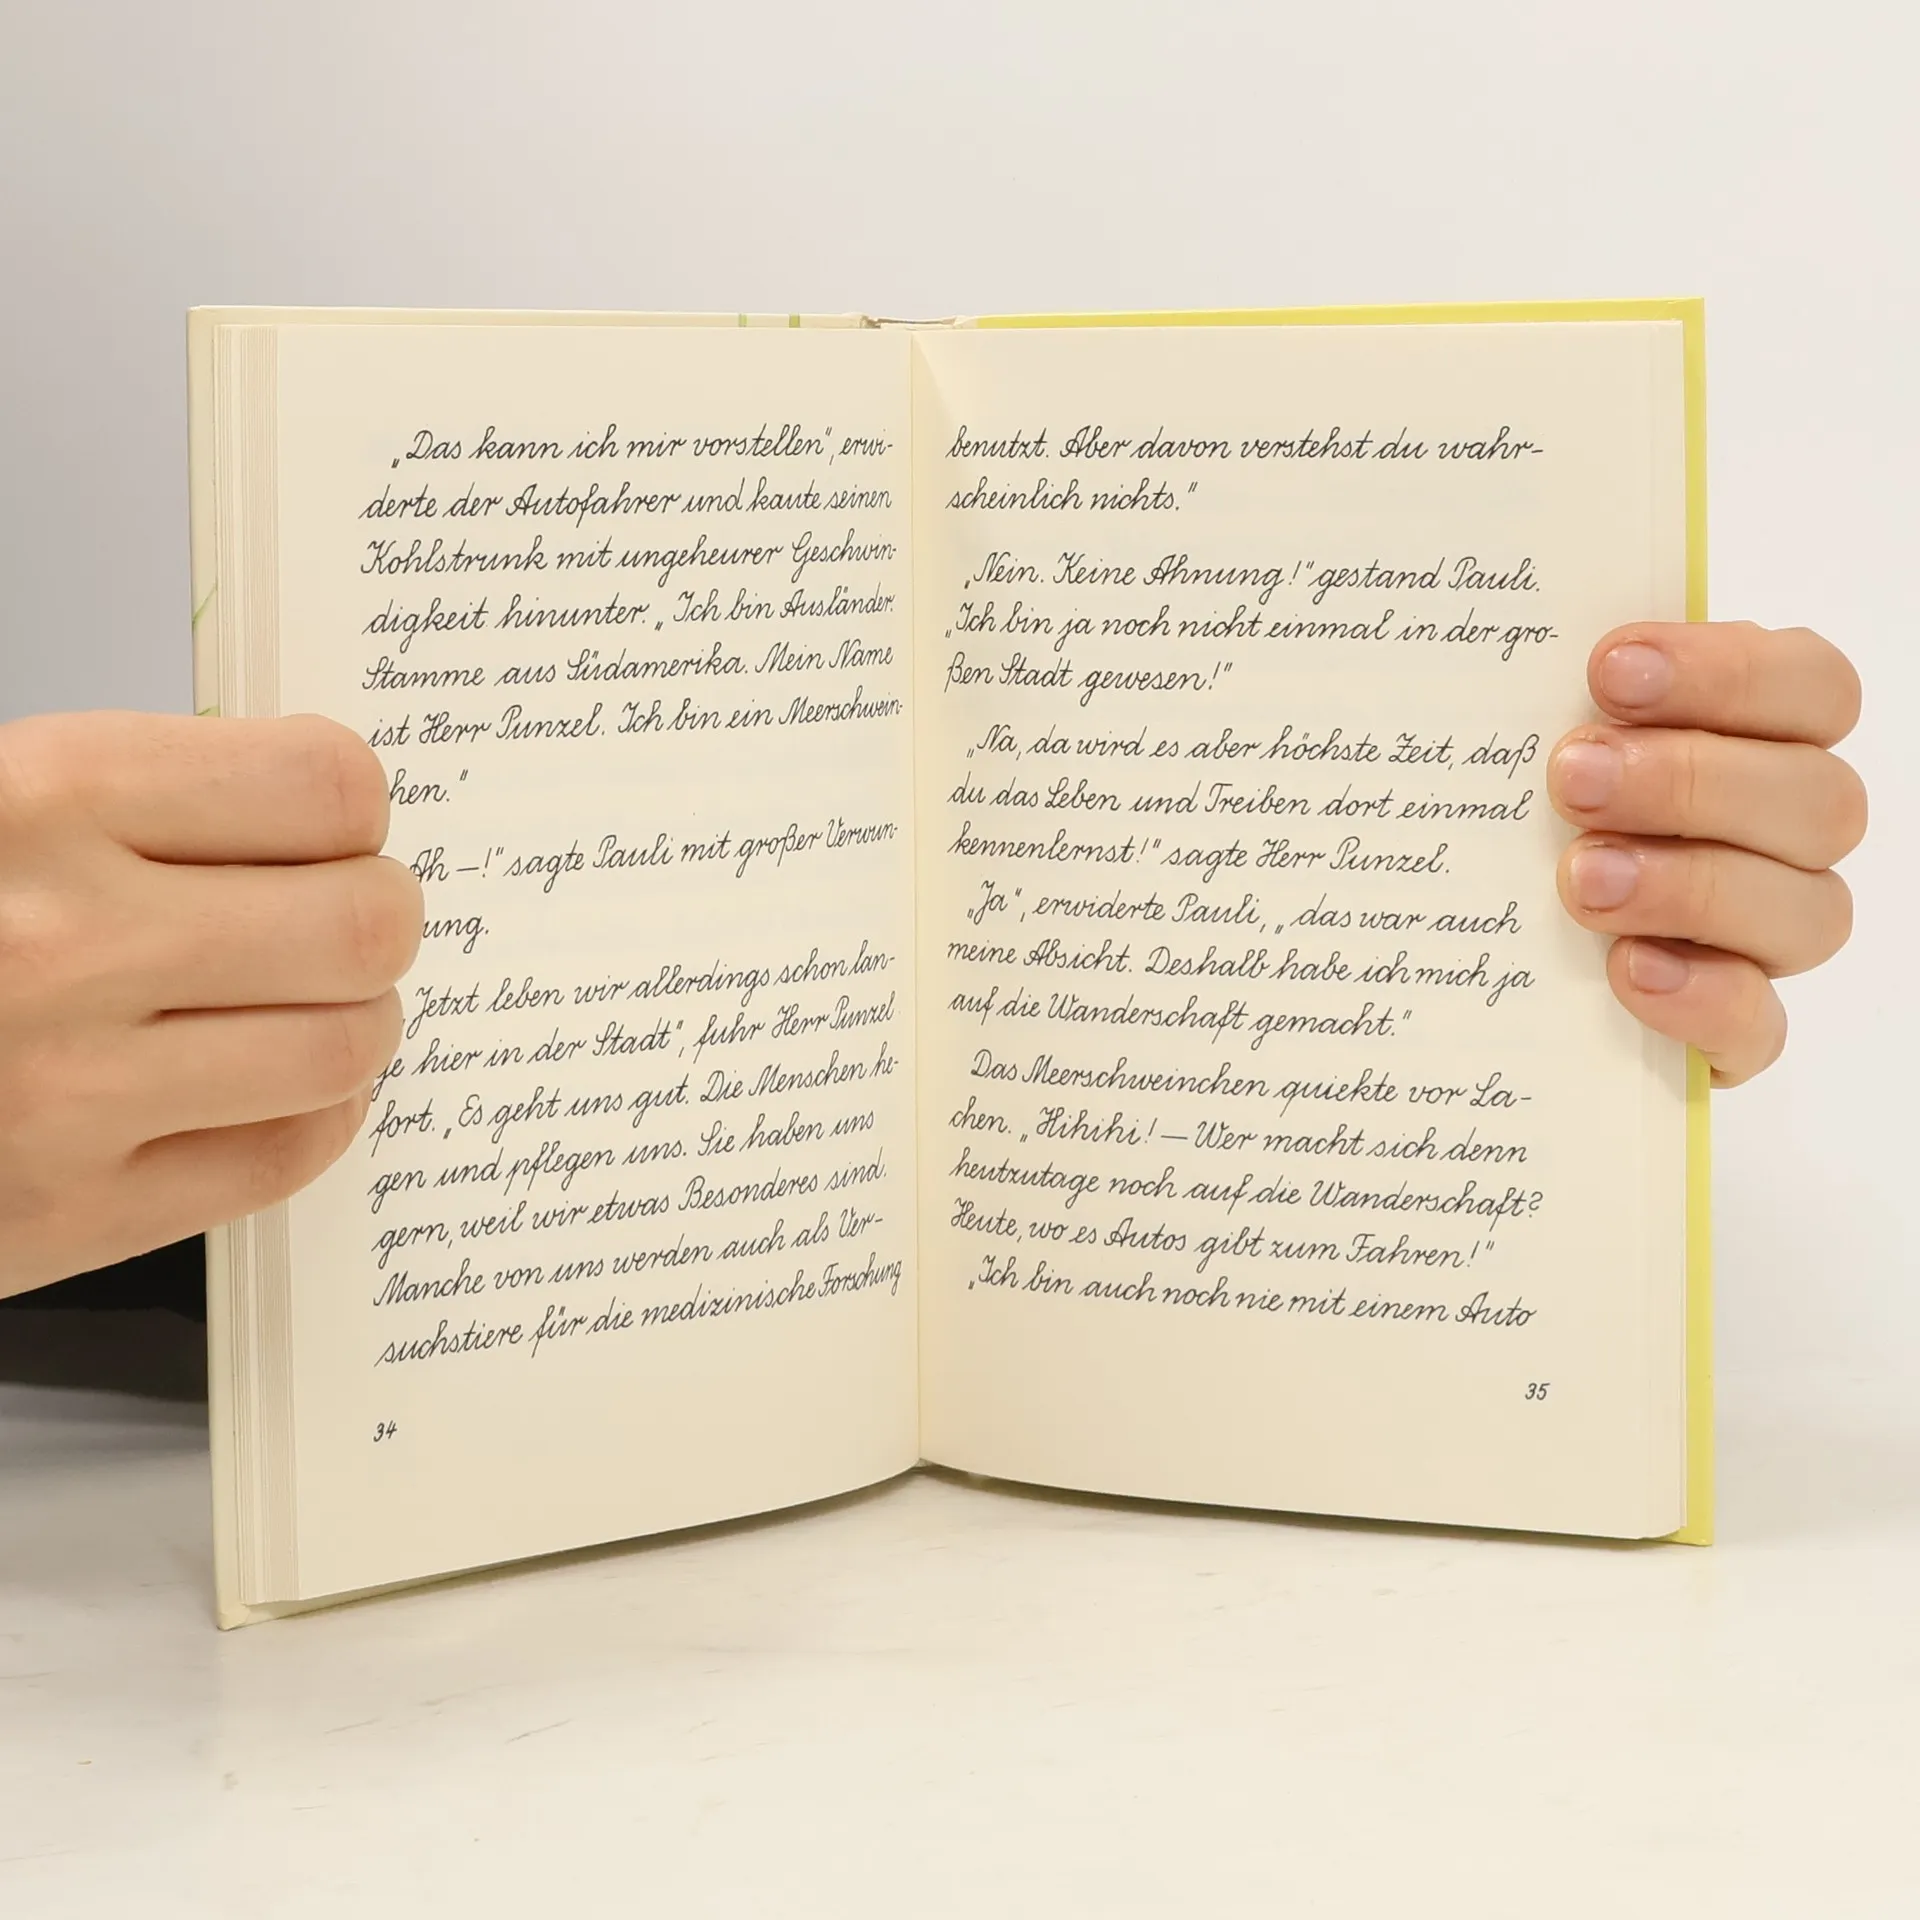 „Das kann ich mir vorstellen", erwi-
derte der Autofahrer und kaute seinen
Kohlstrunk mit ungeheurer Geschwin-
digkeit hinunter. „Ich bin Ausländer.
Stamme aus Südamerika. Mein Name
ist Herr Punzel. Ich bin ein Meerschwein-
hen."
Ah —!" sagte Pauli mit großer Verwun-
ung.
„Jetzt leben wir allerdings schon lan-
ge hier in der Stadt", fuhr Herr Punzel
fort. „Es geht uns gut. Die Menschen he-
gen und pflegen uns. Sie haben uns
gern, weil wir etwas Besonderes sind.
Manche von uns werden auch als Ver-
suchstiere für die medizinische Forschung
34
benutzt. Aber davon verstehst du wahr-
scheinlich nichts."
„Nein. Keine Ahnung!" gestand Pauli.
„Ich bin ja noch nicht einmal in der gro-
ßen Stadt gewesen!"
„Na, da wird es aber höchste Zeit, daß
du das Leben und Treiben dort einmal
kennenlernst!" sagte Herr Punzel.
„Ja", erwiderte Pauli, „das war auch
meine Absicht. Deshalb habe ich mich ja
auf die Wanderschaft gemacht."
Das Meerschweinchen quiekte vor La-
chen. „Hihihi! — Wer macht sich denn
heutzutage noch auf die Wanderschaft?
Heute, wo es Autos gibt zum Fahren!"
„Ich bin auch noch nie mit einem Auto
35